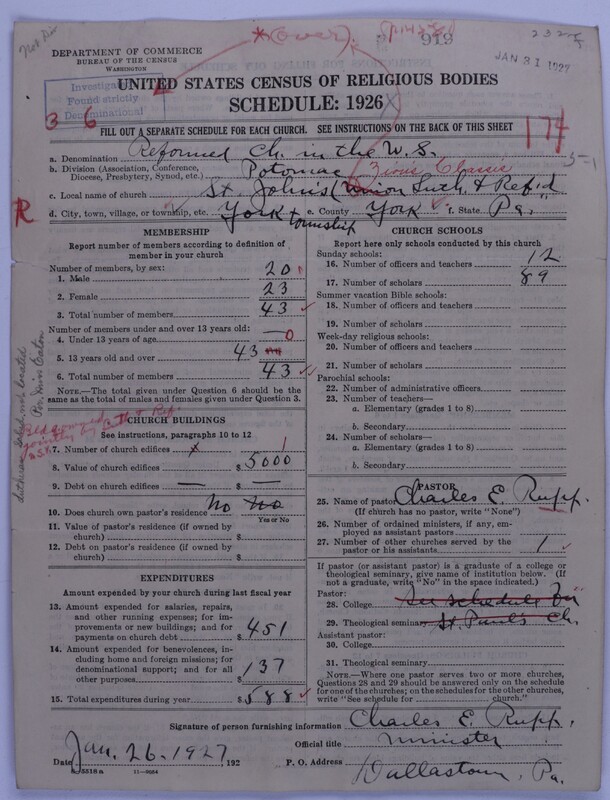 Not Pin
*(over)
919
232
JAN 31 1927
DEPARTMENT OF COMMERCE
BUREAU OF THE CENSUS
WASHINGTON
UNITED STATES CENSUS OF RELIGIOUS BODIES
SCHEDULE: 1926
Investigated
Found strictly
Denominational
3 6 2
174
FILL OUT A SEPARATE SCHEDULE FOR EACH CHURCH. SEE INSTRUCTIONS ON THE BACK OF THIS SHEET
a. Denomination Reformed Ch. in the U.S.
5-1
b. Division (Association, Conference, Diocese, Presbytery, Synod, etc.) Potomac Zion's Classis
c. Local name of church St. John's (Union Luth & Ref'd
R
d. City, town, village, or township, etc. York township e. County York f. State Pa.
MEMBERSHIP
Report number of members according to definition of
member in your church
Number of members, by sex:
1. Male 20
2. Female 23
3. Total number of members 43
Number of members under and over 13 years old:
4. Under 13 years of age — 0
5. 13 years old and over 43
6. Total number of members 43
NOTE.—The total given under Question 6 should be
same as the total of males and females given under Question 3.
Lutheran sched. not located
Per Miss Eaton
Bldg owned
jointly by Luth & Ref.
CHURCH BUILDINGS
See instructions, paragraphs 10 to 12
7. Number of church edifices 1
8. Value of church edifices $ 5000
9. Debt on church edifices — $ —
10. Does church own pastor's residence? No No
Yes or No
11. Value of pastor's residence (if owned by
church) $
12. Debt on pastor's residence (if owned by
church) $
EXPENDITURES
Amount expended by your church during last fiscal year
13. Amount expended for salaries, repairs,
and other running expenses; for im-
provements or new buildings; and for
payments on church debt $ 451
14. Amount expended for benevolences,
including home and foreign missions; for
denominational support; and for all
other purposes $ 137
15. Total expenditures during year $ 588
CHURCH SCHOOLS
Report here only schools conducted by this church
Sunday schools:
16. Number of officers and teachers 12
17. Number of scholars 89
Summer vacation Bible schools:
18. Number of officers and teachers
19. Number of scholars
Week-day religious schools:
20. Number of officers and teachers
21. Number of scholars
Parochial schools:
22. Number of administrative officers
23. Number of teachers—
a. Elementary (grades 1 to 8)
b. Secondary
24. Number of scholars—
a. Elementary (grades 1 to 8)
b. Secondary
PASTOR
25. Name of pastor Charles E. Rupp.
(If church has no pastor, write "None")
26. Number of ordained ministers, if any, em-
ployed as assistant pastors
27. Number of other churches served by the
pastor or his assistants 1
If pastor (or assistant pastor) is a graduate of a college or
theological seminary, give name of institution below. (If
not a graduate, write "No" in the space indicated.)
Pastor:
28. College See schedule for
29. Theological seminary St. Paul's Ch.
Assistant pastor:
30. College
31. Theological seminary
NOTE.—Where one pastor serves two or more churches,
Questions 28 and 29 should be answered only on the schedule
for one of the churches; on the schedules for the other churches,
write "See schedule for church."
Signature of person furnishing information Charles E. Rupp.
Official title minister
Date Jan. 26. 1927, 192
P. O. Address Dallastown, Pa.
8-5518a 11-9084